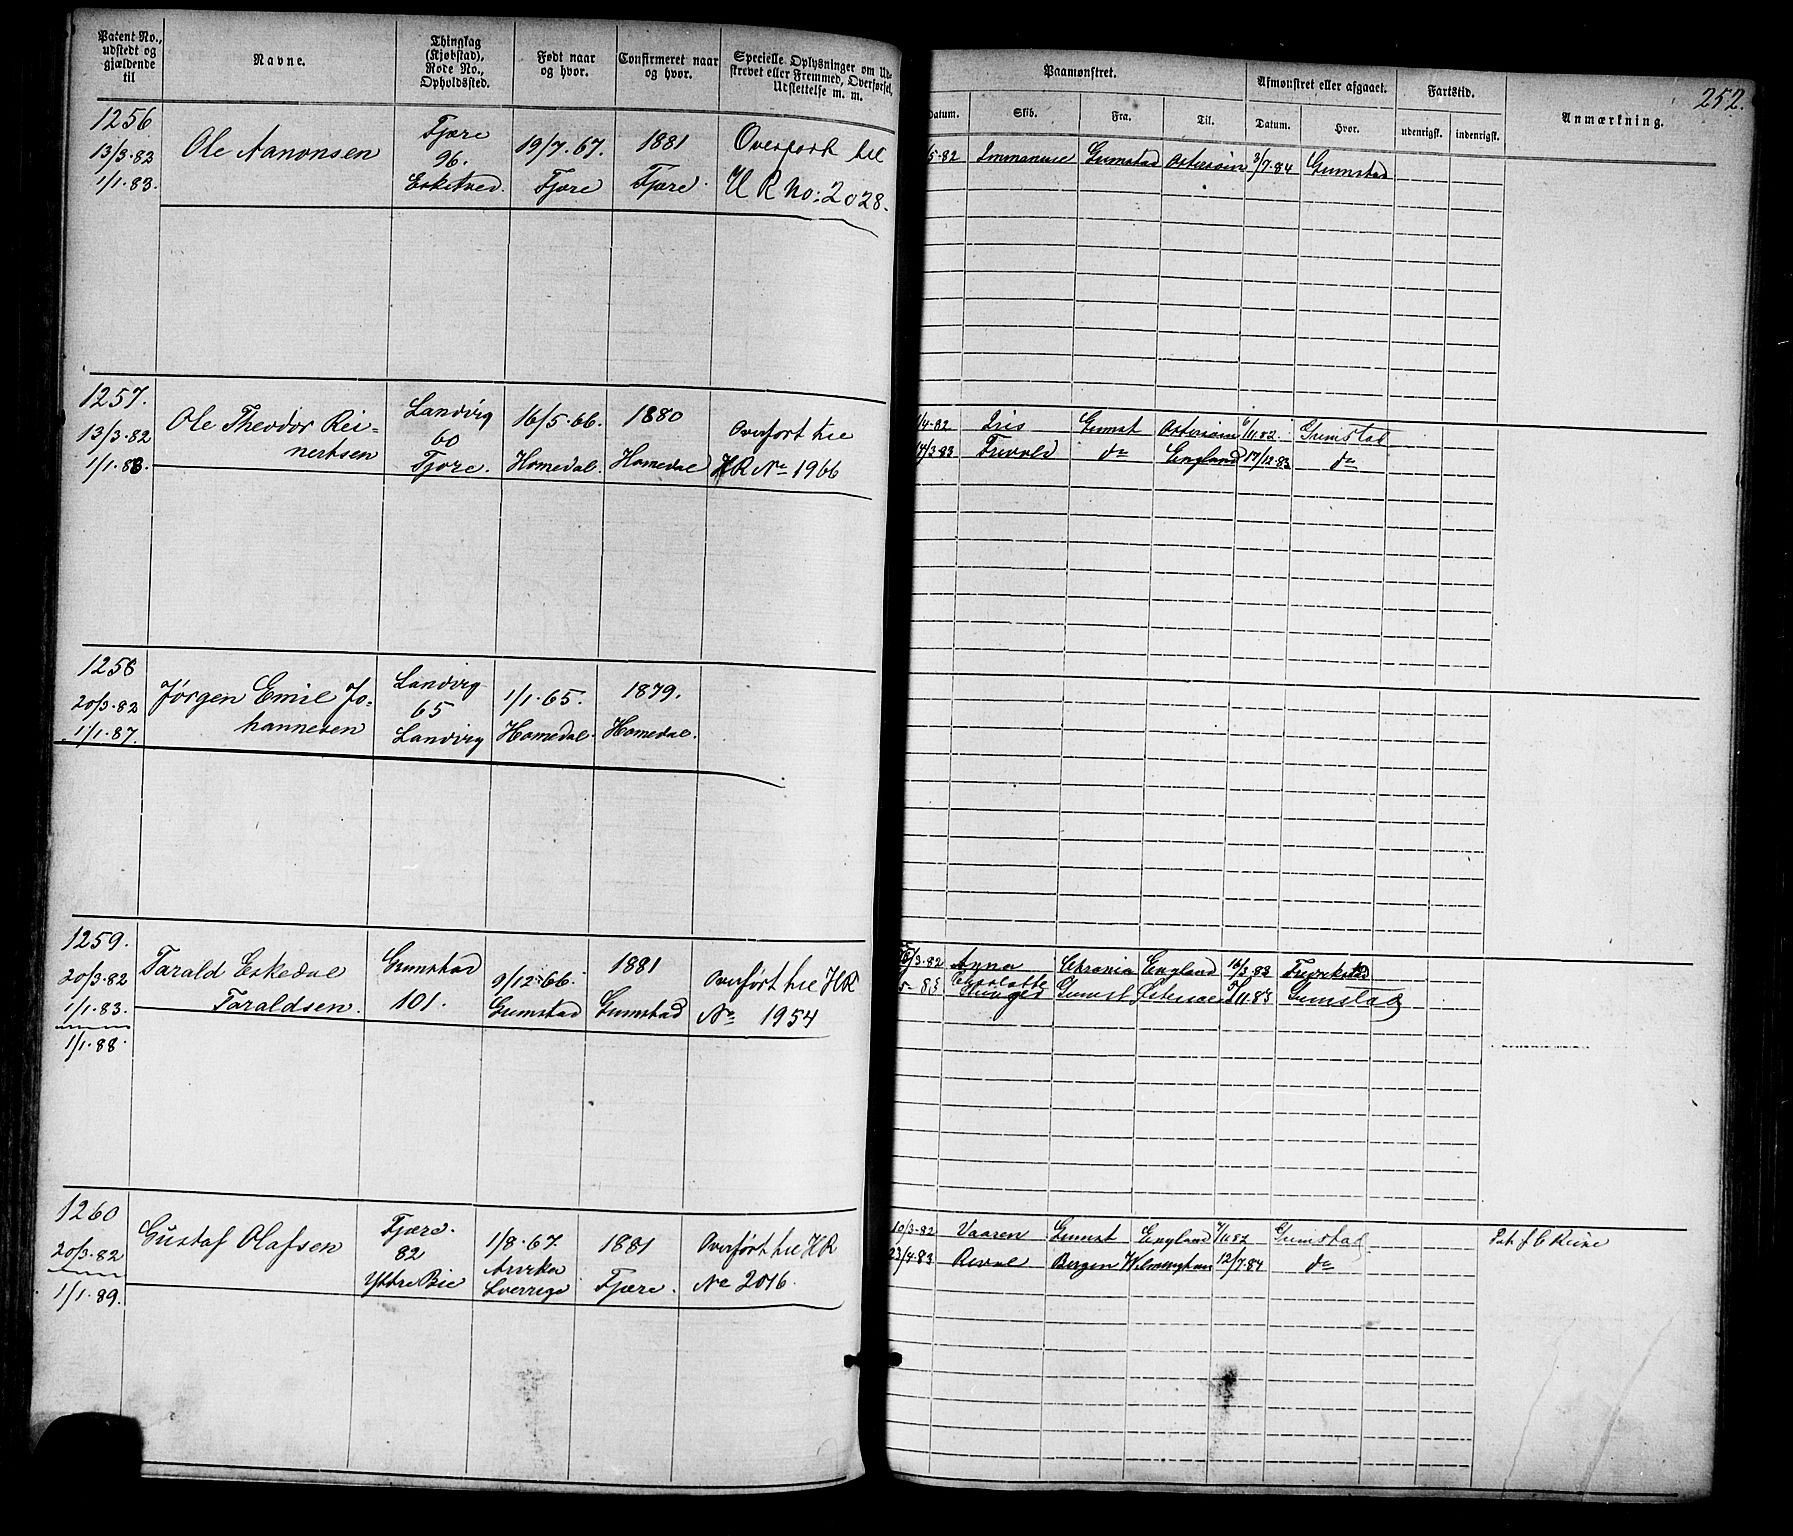 Patent No., udstedt og gjældende til
Navne.
Thinglag (Kjøbstad), Rode No., Opholdssted.
Født naar og hvor.
Confirmeret naar og hvor.
Specielle Oplysninger om Udskrevet eller Fremmed, Overførsel, Udslettelse m. m.
Paamønstret.
Afmønstret eller afgaaet.
Fartstid.
Anmærkning.
252.
Datum.
Skib.
Fra.
Til.
Datum.
Hvor.
udenrigsk.
indenrigsk.
1256
13/3.82
1/1.83.
Ole Aanonsen
Fjære
96.
Esketved.
19/7.67.
Fjære
1881
Fjære.
Overført til
H R No: 2028.
/5.82 Immanuel Grimstad Østersøen 3/7.84 Grimstad
1257.
13/3.82
1/1.88.
Ole Theodor Rei-
nertsen
Landvig
60
Fjære.
16/5.66.
Homedal.
1880
Homedal
Overført til
HR No 1966
/4.82 Iris Grimst Østersøen 6/11.82. Grimstad
14/3.83 Frivold do England 17/12.83 do
1258
20/3.82
1/1.87.
Jørgen Emil Jo-
hannesen
Landvig
65
Landvig
1/1.65.
Homedal.
1879.
Homedal.
1259.
20/3.82
1/1.83.
1/1.88.
Tarald Eskedal
Taraldsen.
Grimstad
101.
9/12.66.
Grimstad
1881
Grimstad
Overført til HR
No 1954
/3.82 Anna England 16/3.83 Fredrikstad
5-83 Charlotte Grimst 11.83 Grimstad
1260
20/3.82
1/1.89.
Gustaf Olafsen
Fjære.
82
Yttre Bie
1/8.67.
Arvika
Sverrige
1881
Fjære.
Overført til HR
No 2016.
10/3.82 Vaaren Grimst England /11.82 Grimstad
23/4.83 Bergen 12/7.84 do